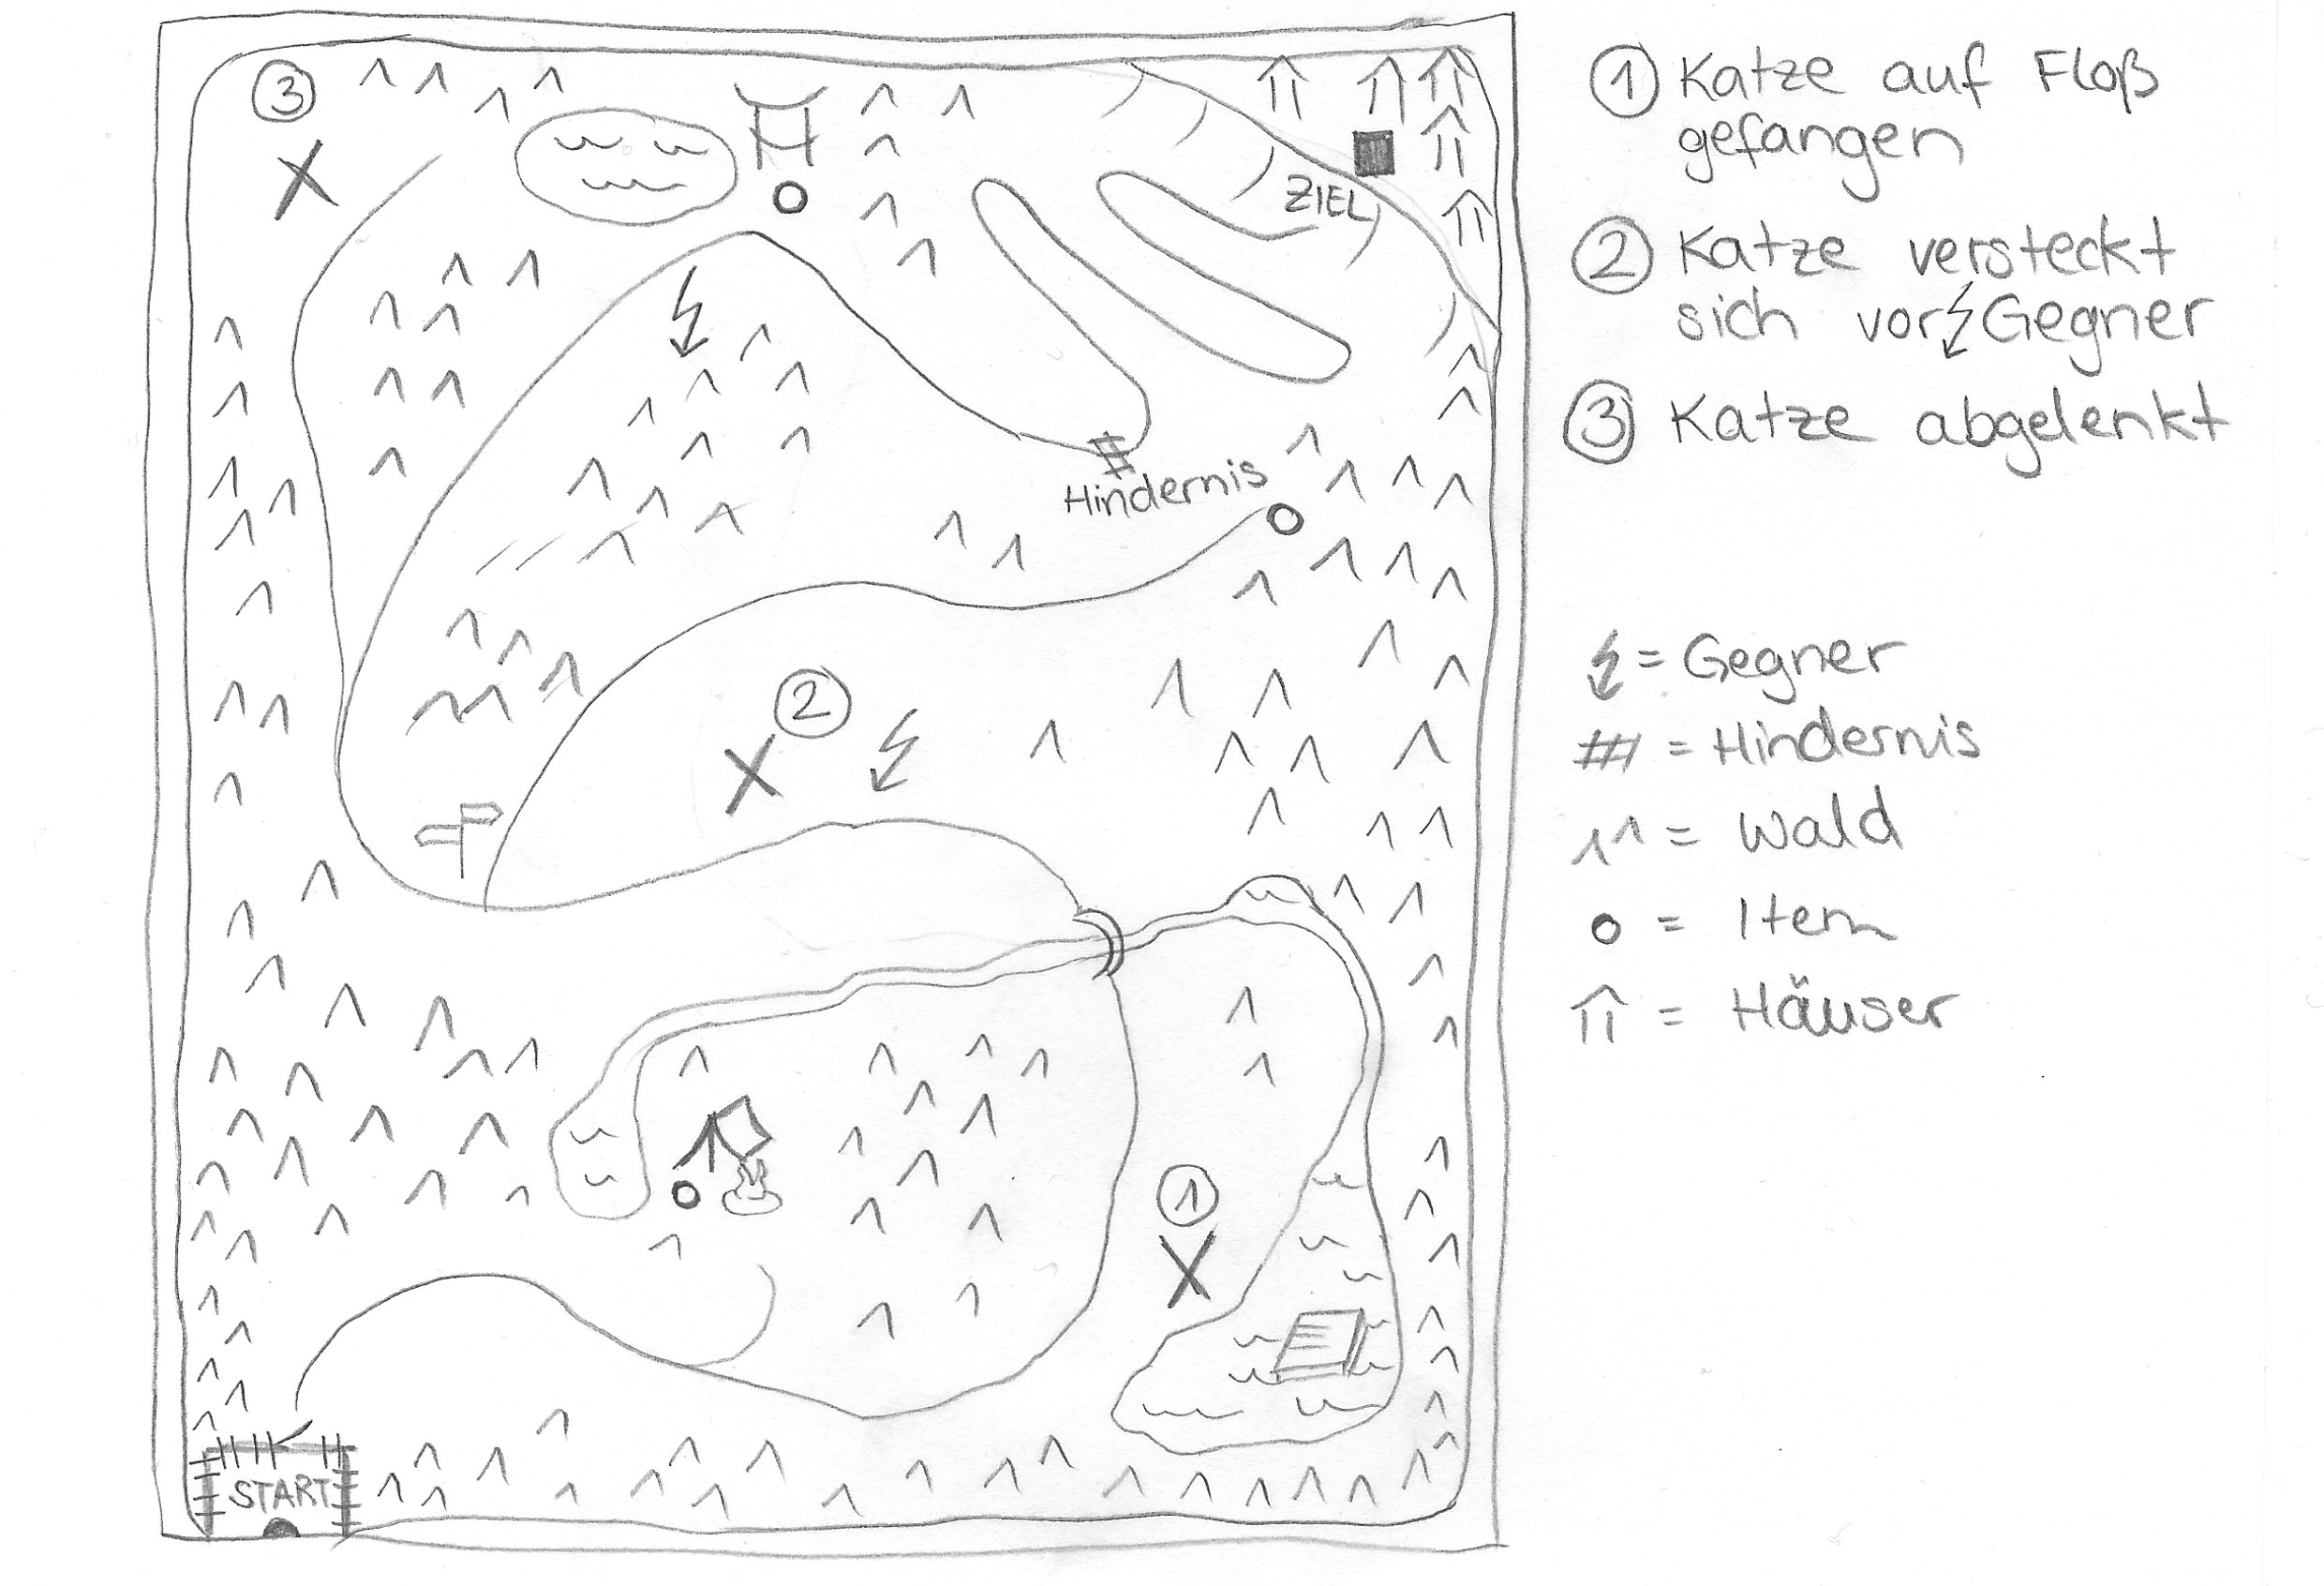 ③
ZIEL
Hindernis
②
①
START
① Katze auf Floß
gefangen
② Katze versteckt
sich vor Gegner
③ Katze abgelenkt
= Gegner
= Hindernis
= Wald
= Item
= Häuser